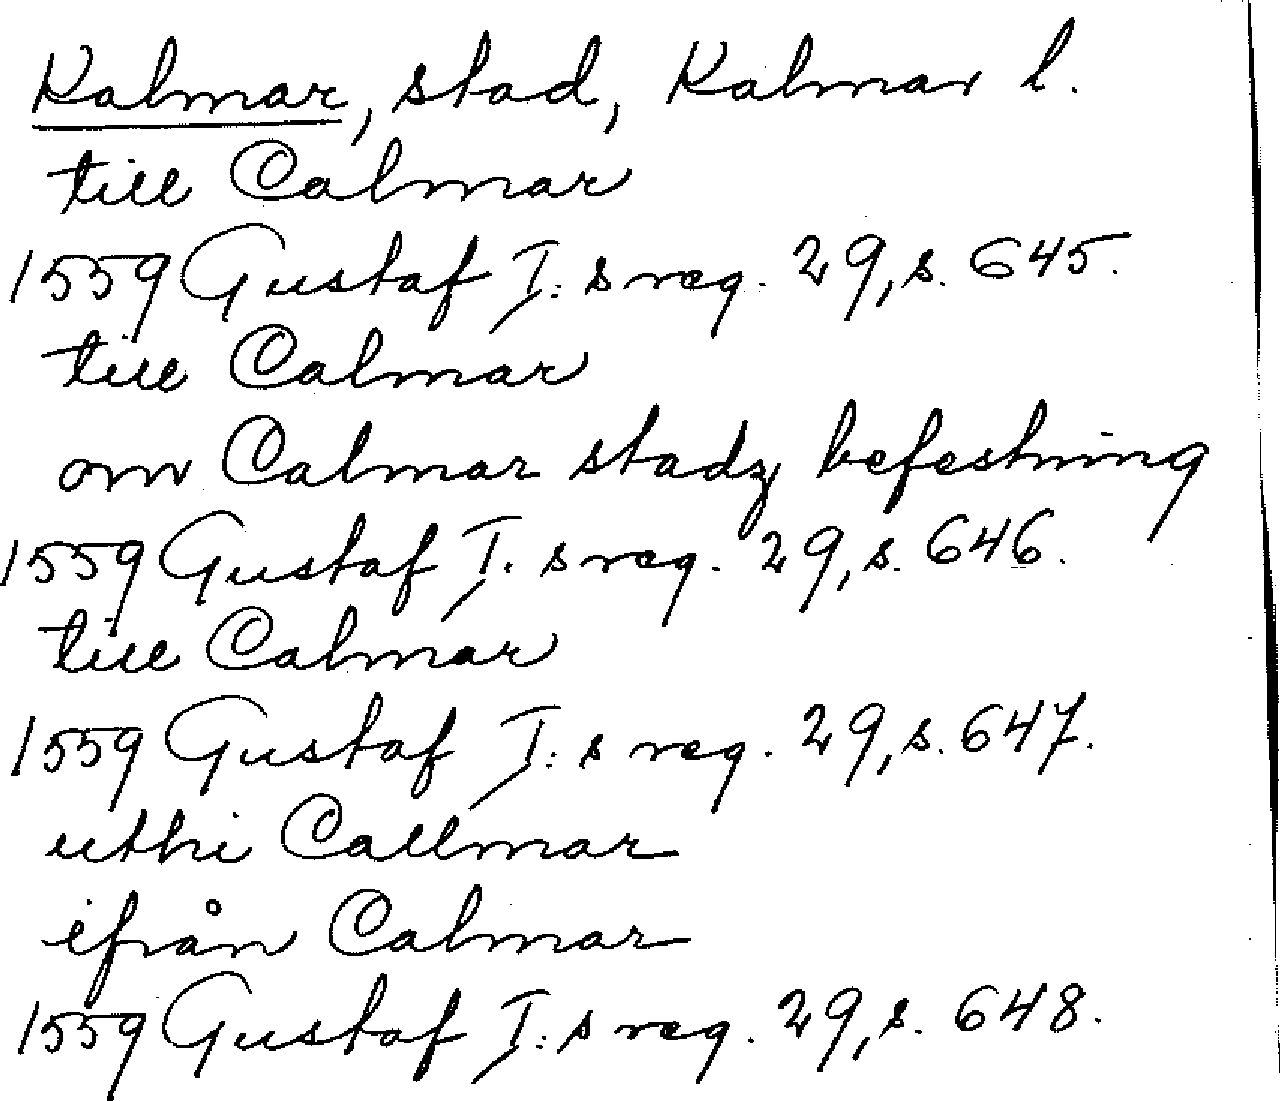 Kalmar, stad, Kalmar l.
till Calmar
1559 Gustaf I:s reg. 29, s. 645.
till Calmar
om Calmar stadz befestning
1559 Gustaf I.s reg. 29, s. 646.
till Calmar
1559 Gustaf I:s reg. 29, s. 647.
uthi Callmar
ifrån Calmar
1559 Gustaf I:s reg. 29, s. 648.